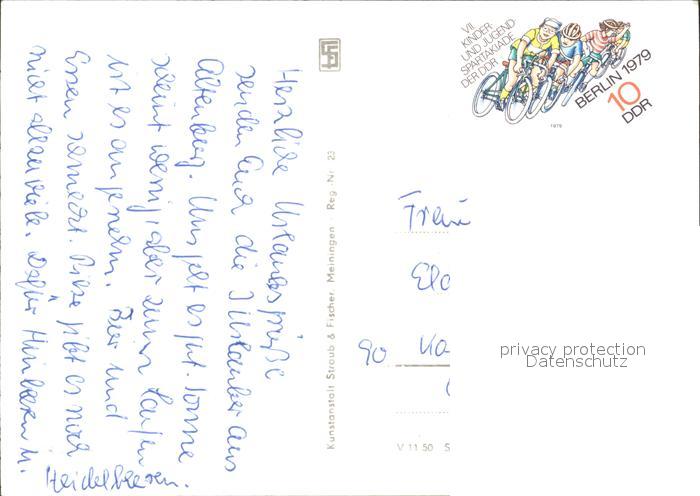 Herzliche Urlaubsgrüße
senden Euch die 3 Urlauber aus
Altenberg. Uns geht es gut. Sonne
scheint wenig, aber zum Laufen
ist es angenehm. Bier und
Essen schmeckt. Pilze gibt es noch
nicht allzuviele. Dafür Himbeeren u.
Heidelbeeren.
Kunstanstalt Straub & Fischer, Meiningen · Reg.-Nr. 23
VII.
KINDER-
UND JUGEND
SPARTAKIADE
DER DDR
BERLIN 1979
10
DDR
1979
90
privacy protection
Datenschutz
V 11 50 S